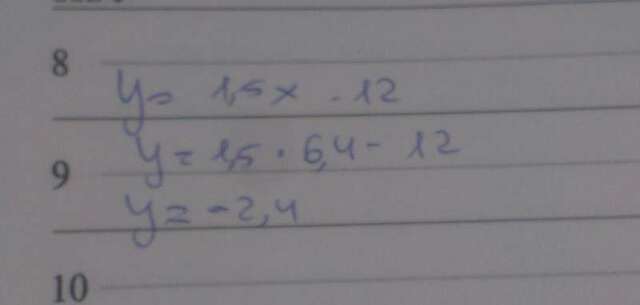 8
y = 1,5x - 12
y = 1,5 · 6,4 - 12
9
y = -2,4
10